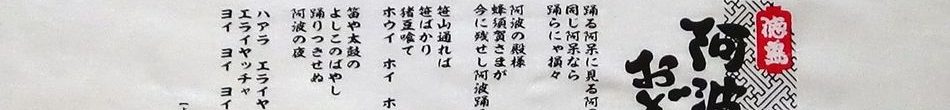 徳島
阿波
おど
踊る阿呆に見る阿
同じ阿呆なら
踊らにゃ損々
阿波の殿様
蜂須賀さまが
今に残せし阿波踊
笹山通れば
笹ばかり
猪豆喰て
ホウイ ホイ ホ
笛や太鼓の
よしこのばやし
踊りつきせぬ
阿波の夜
ハアラ エライヤ
エライヤッチャ
ヨイ ヨイ ヨイ